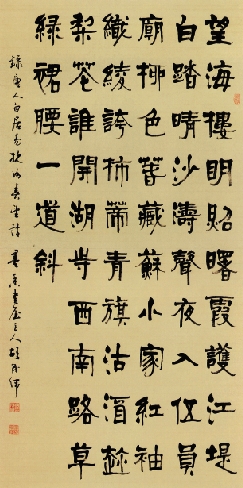 望海樓明照曙霞護江堤
白踏晴沙濤聲夜入伍員
廟柳色春藏蘇小家紅袖
織綾誇柿蒂青旗沽酒趁
梨花誰開湖寺西南路草
綠裙腰一道斜
錄唐人白居易杭州春望詩